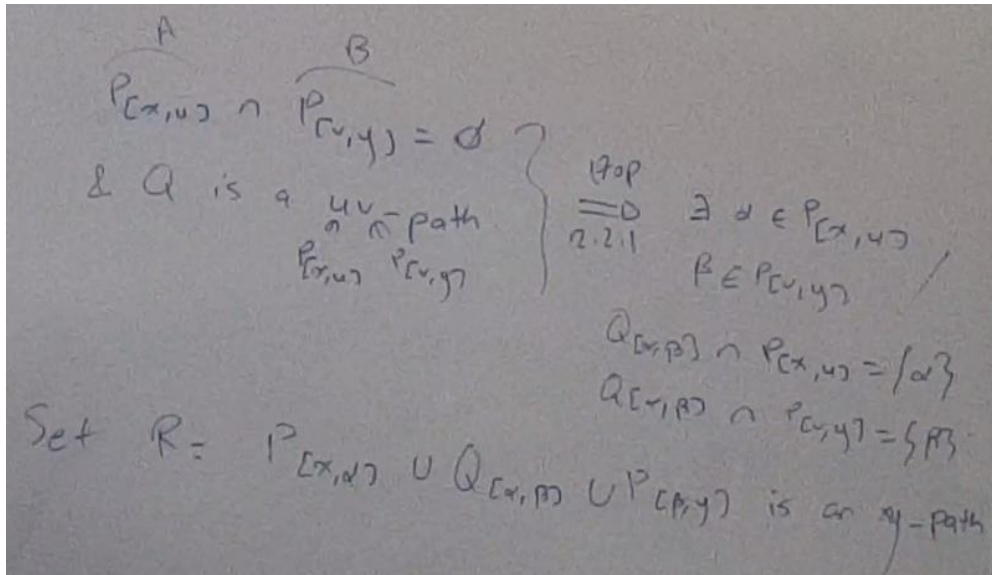 A
B
P[x,u] ∩ P[v,y] = ∅
& Q is a uv-path
P[x,u] P[v,y]
Prop
⟹ ∃ α ∈ P[x,u]
2.2.1
β ∈ P[v,y] /
Q[α,β] ∩ P[x,u] = {α}
Q[α,β] ∩ P[v,y] = {β}
Set R = P[x,α] ∪ Q[α,β] ∪ P[β,y] is an xy-path